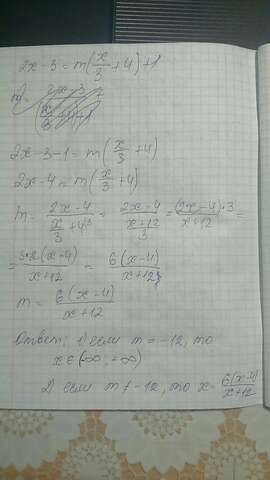 2x - 3 = m(x/3 + 4) + 1
2x - 3 - 1 = m(x/3 + 4)
2x - 4 = m(x/3 + 4)
m = (2x - 4)/(x/3 + 4^3) = (2x - 4)/((x + 12)/3) = ((2x - 4)·3)/(x + 12) =
= (3·2(x - 4))/(x + 12) = (6(x - 4))/(x + 12)
m = (6(x - 4))/(x + 12)
Ответ: 1) если m = -12, то
x ∈ (-∞, +∞)
2) если m ≠ -12, то x = (6(x - 4))/(x + 12)